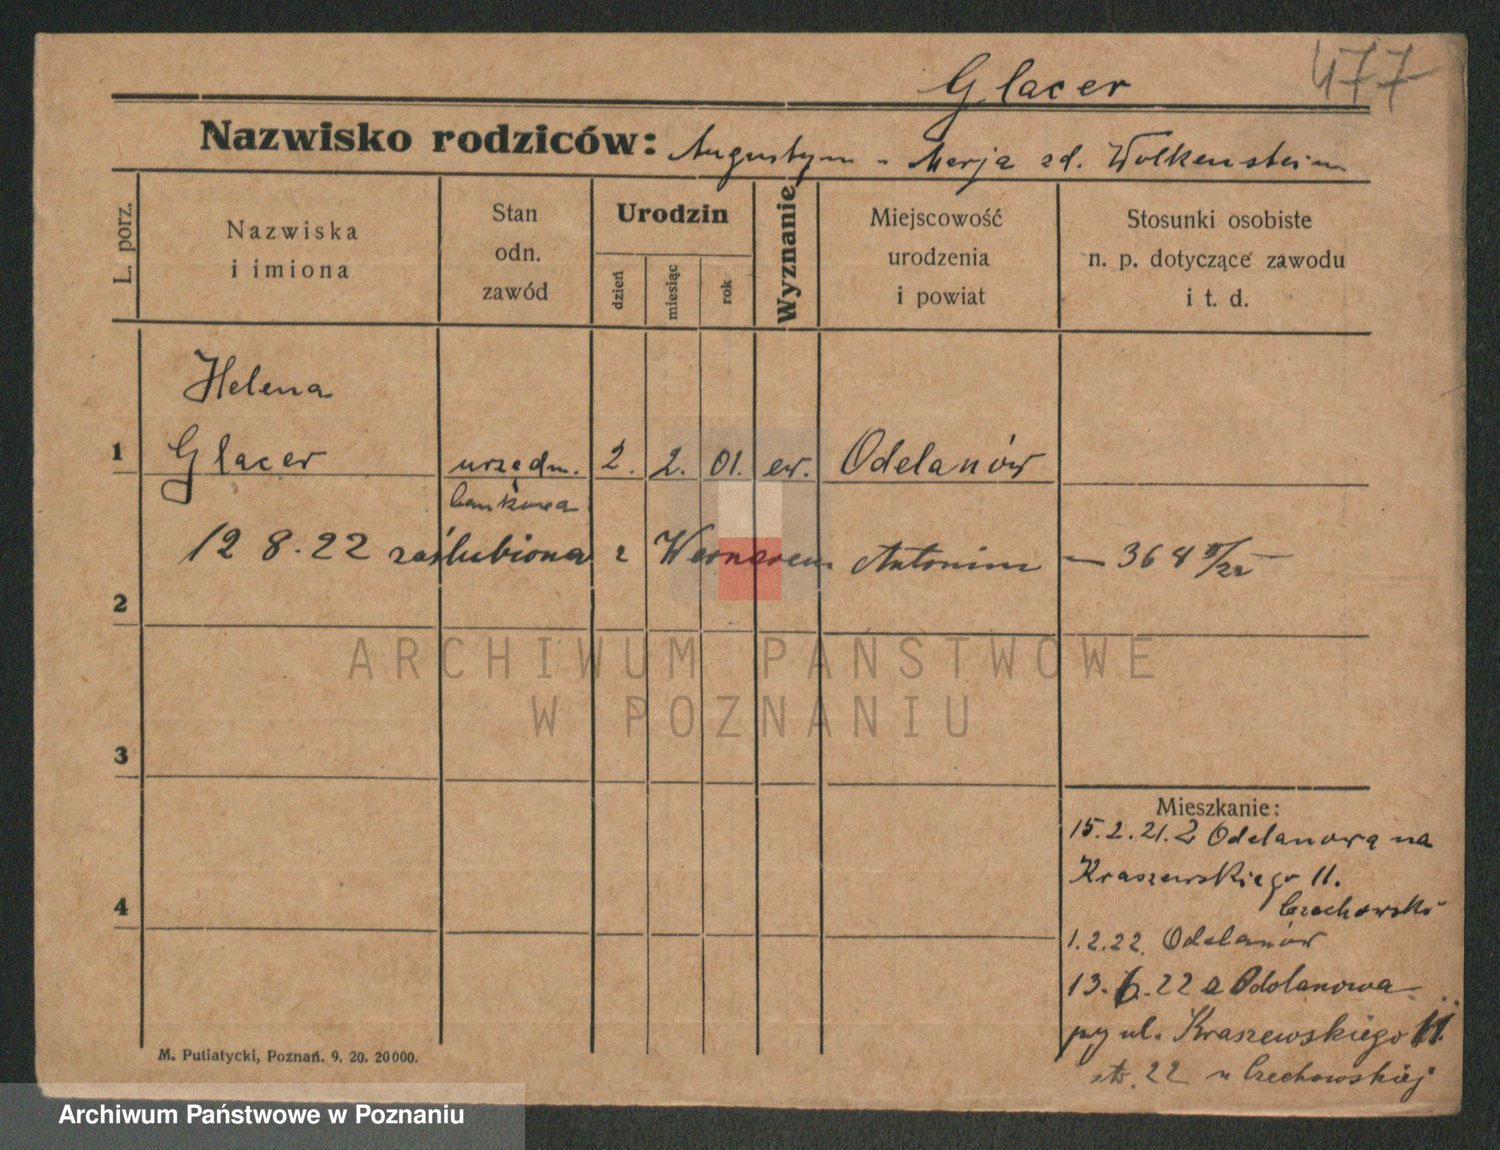 477
Glacer
Nazwisko rodziców: Augustym - Marja zd. Wolkenstein
L. porz.
Nazwiska
i imiona
Stan
odn.
zawód
Urodzin
dzień
miesiąc
rok
Wyznanie
Miejscowość
urodzenia
i powiat
Stosunki osobiste
n. p. dotyczące zawodu
i t. d.
Helena
1 Glacer urzędn. 2. 2. 01. ew. Odelanów
bankowa
12 8. 22 zaślubiona z Wernerem Antonim — 368
2
ARCHIWUM PAŃSTWOWE
W POZNANIU
3
4
Mieszkanie:
15.2.21. Z Odelanowa na
Kraszewskiego 11.
Czochowska
1.2.22. Odelanów
13.6.22 z Odolanowa
py ul. Kraszewskiego 11.
str. 22 u Czechowskiej
M. Putiatycki, Poznań. 9. 20. 20000.
Archiwum Państwowe w Poznaniu